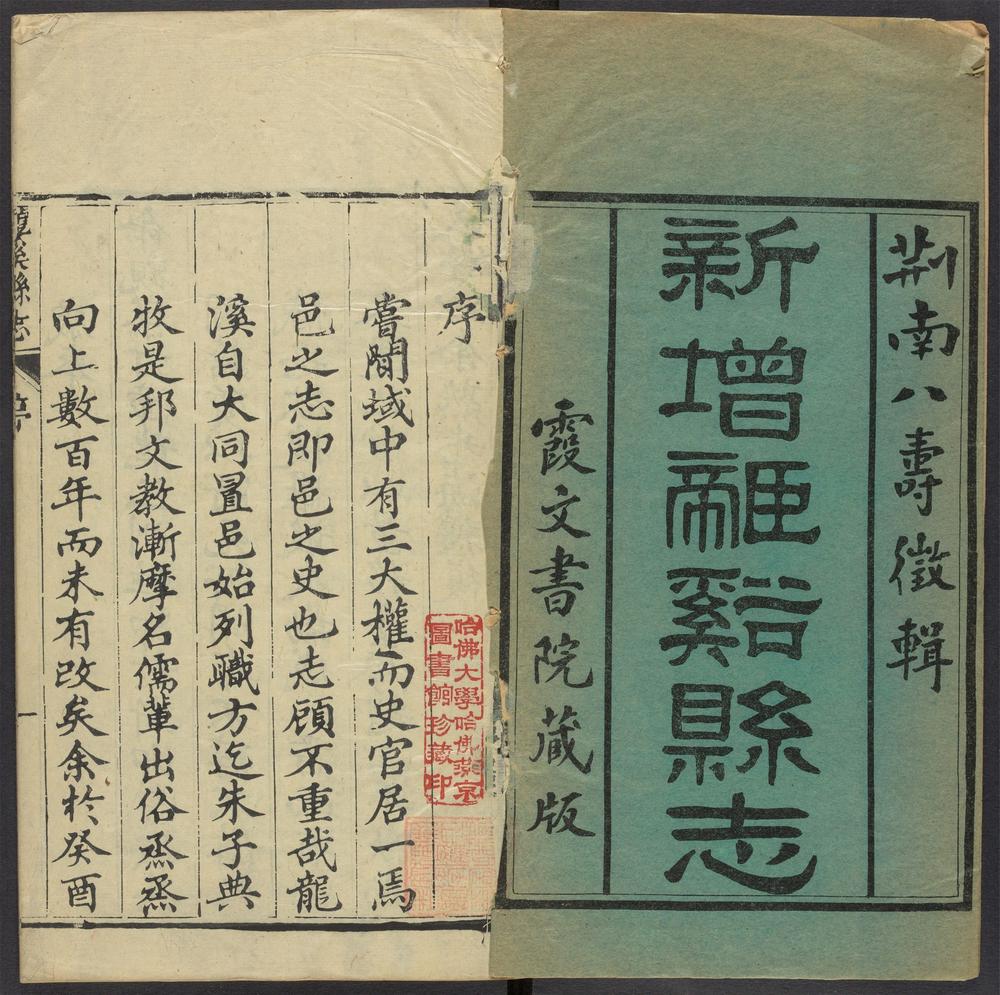 荆南八壽徵輯
新增龍谿縣志
霞文書院藏版
序
嘗聞域中有三大權而史官居一焉
邑之志即邑之史也志顧不重哉龍
溪自大同置邑始列職方迄朱子典
牧是邦文教漸摩名儒輩出俗烝烝
向上數百年而未有改矣余於癸酉
龍溪縣志 序 一
哈佛大學哈佛燕京
圖書館珍藏印